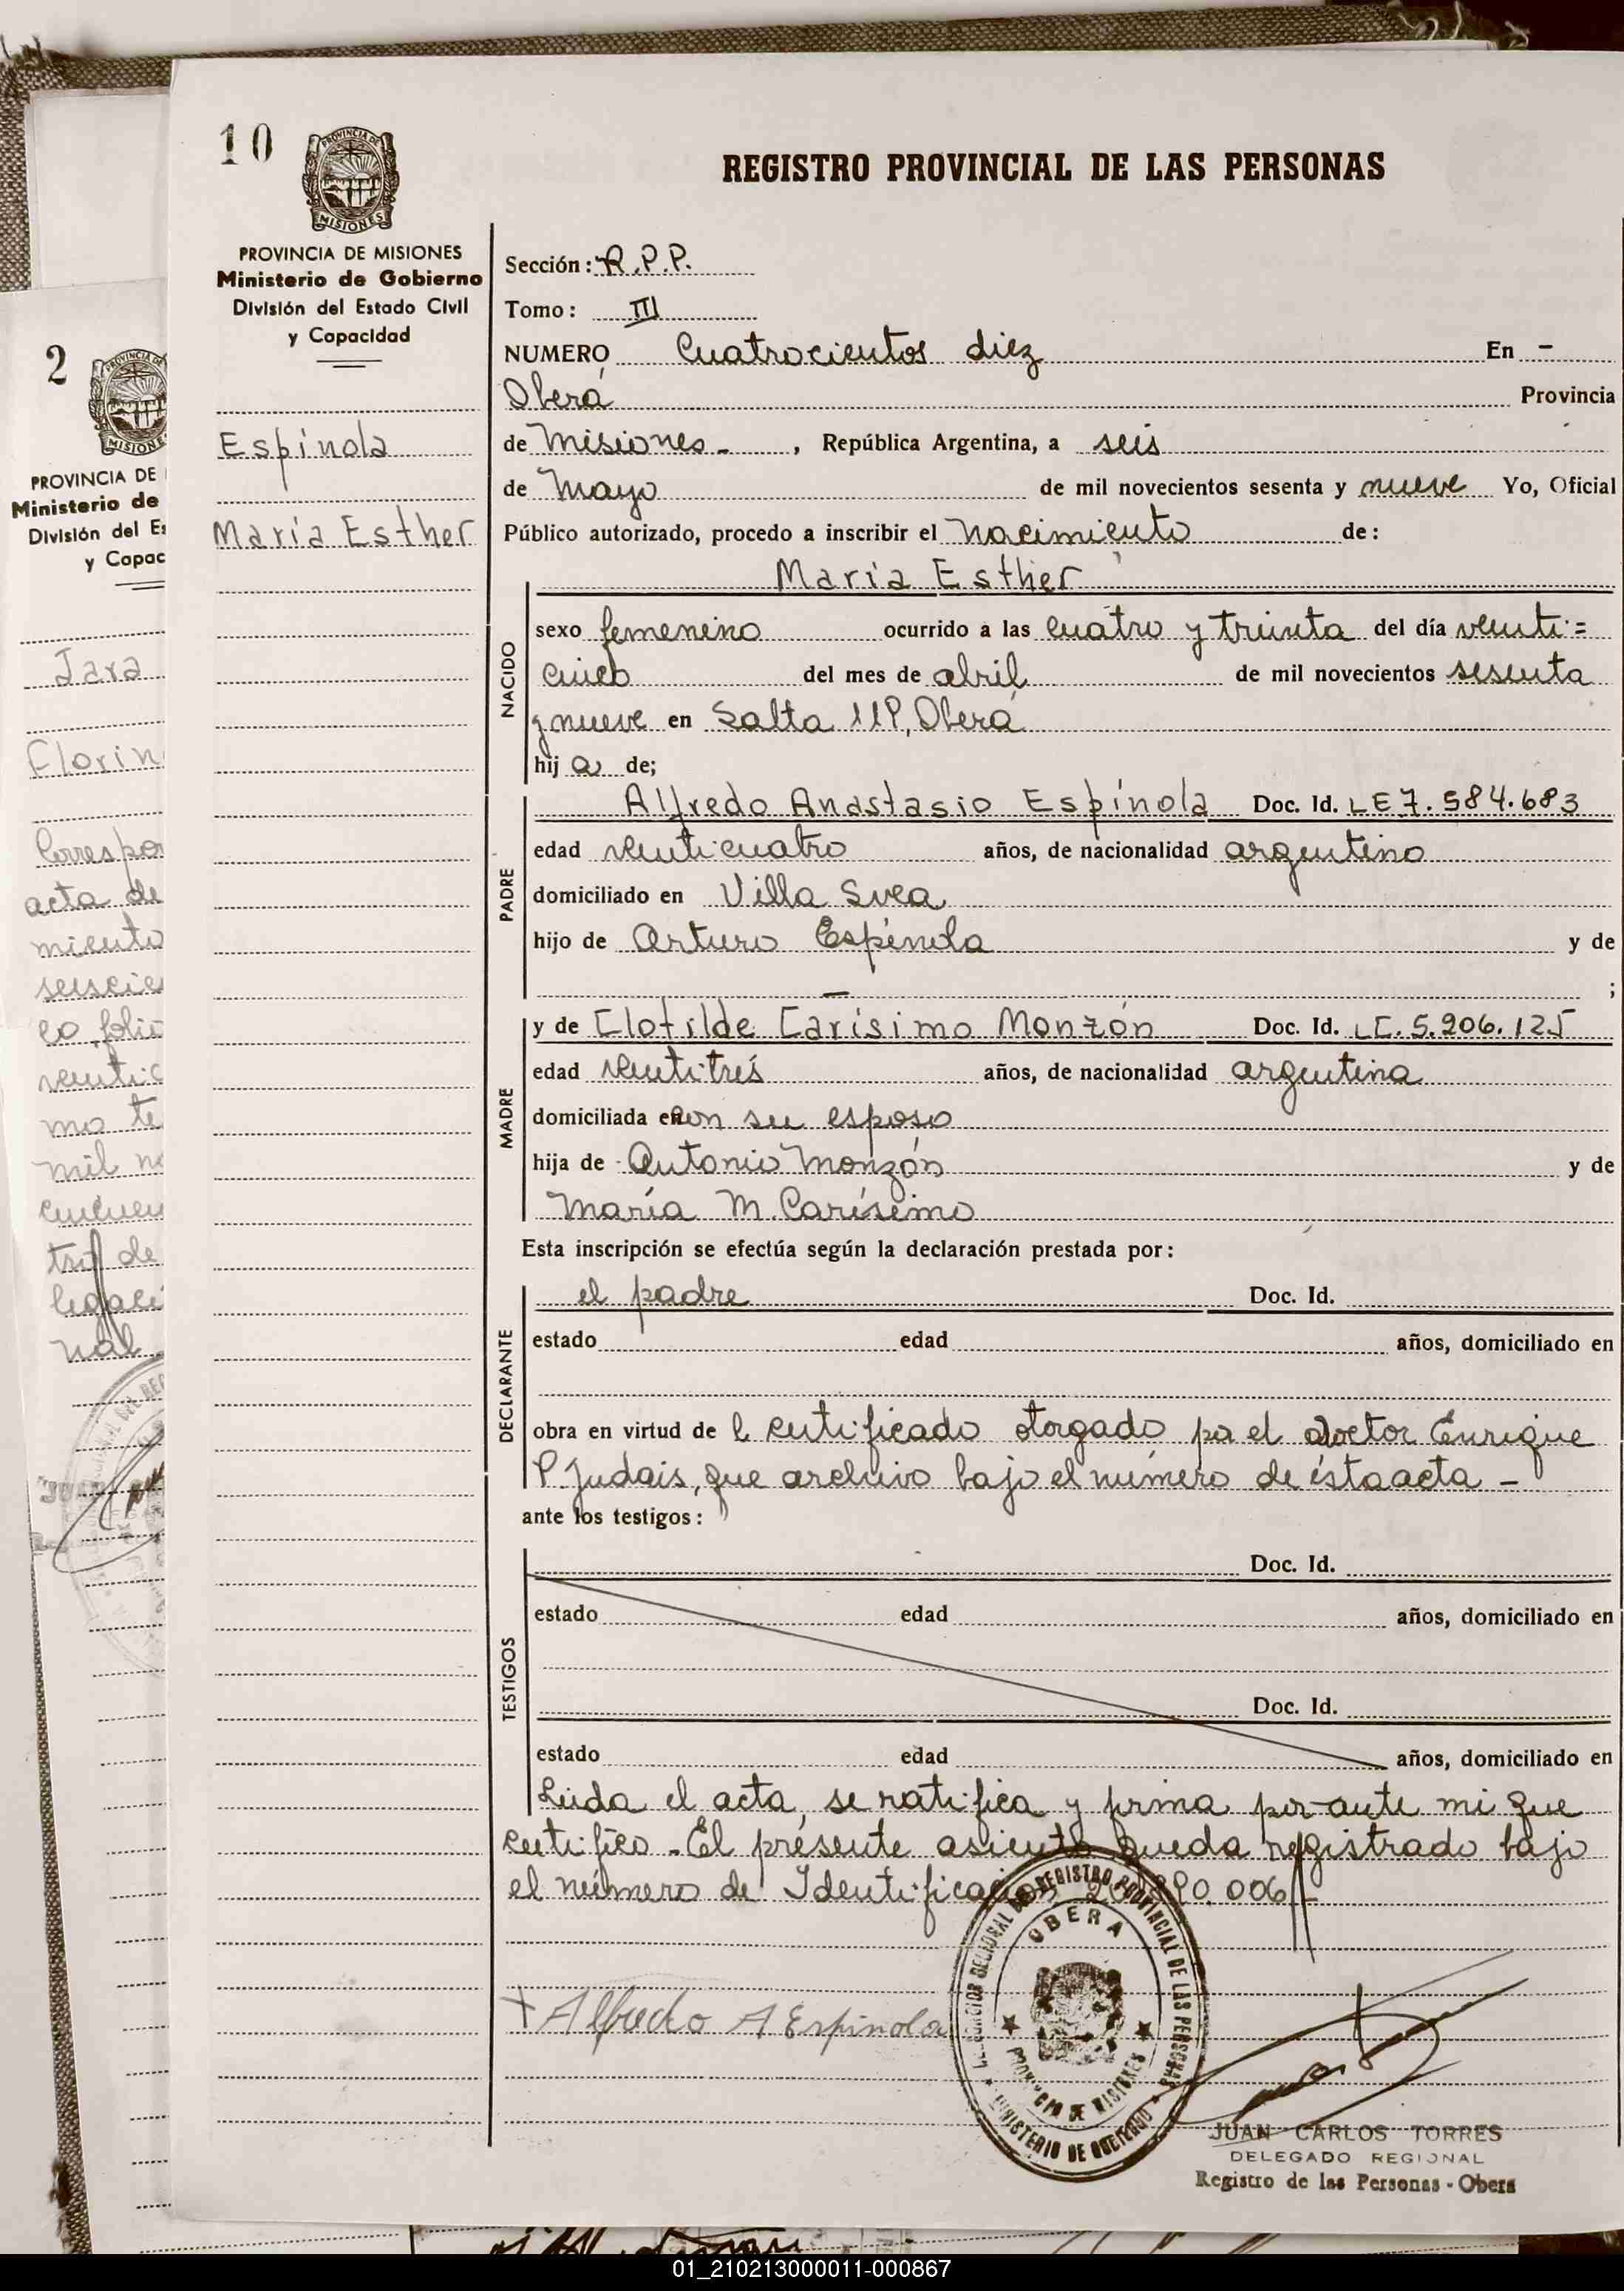 10
PROVINCIA DE MISIONES
MISIONES
PROVINCIA DE MISIONES
Ministerio de Gobierno
División del Estado Civil
y Capacidad
Espínola
María Esther
REGISTRO PROVINCIAL DE LAS PERSONAS
Sección: R.P.P.
Tomo: III
NUMERO Cuatrocientos diez En -
Oberá Provincia
de Misiones - , República Argentina, a seis
de Mayo de mil novecientos sesenta y nueve Yo, Oficial
Público autorizado, procedo a inscribir el Nacimiento de:
María Esther
NACIDO
sexo femenino ocurrido a las cuatro y treinta del día veinti=
cinco del mes de abril de mil novecientos sesenta
y nueve en Salta 119, Oberá
hij a de;
PADRE
Alfredo Anastasio Espínola Doc. Id. LE 7.584.683
edad veinticuatro años, de nacionalidad argentino
domiciliado en Villa Svea
hijo de Arturo Espínola y de
— ;
MADRE
y de Clotilde Carísimo Monzón Doc. Id. LC. 5.206.125
edad veintitrés años, de nacionalidad argentina
domiciliada en con su esposo
hija de Antonio Monzón y de
María M. Carísimo
Esta inscripción se efectúa según la declaración prestada por:
DECLARANTE
el padre Doc. Id.
estado edad años, domiciliado en
obra en virtud de l certificado otorgado por el doctor Enrique
P. Judais, que archivo bajo el número de ésta acta -
ante los testigos:
TESTIGOS
Doc. Id.
estado edad años, domiciliado en
Doc. Id.
estado edad años, domiciliado en
Leída el acta, se ratifica y firma por ante mi que
certifico - El presente asiento queda registrado bajo
el número de Identificación 006
+ Alfredo A Espinola
REGISTRO PROVINCIAL DE LAS PERSONAS
OBERA
PROVINCIA DE MISIONES
MINISTERIO DE GOBIERNO
JUAN CARLOS TORRES
DELEGADO REGIONAL
Registro de las Personas - Obera
2
PROVINCIA DE
Ministerio de
División del Es
y Capac
Jara
Florin
Correspon
acta de
miento
seiscie
co, folio
veintic
mo te
mil no
cincuen
tro de
legaci
nal
01_210213000011-000867